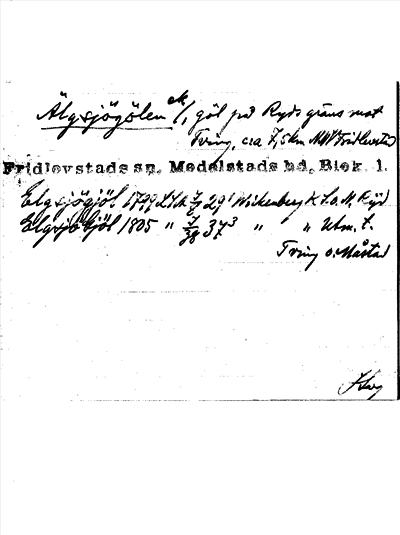 Älgsjögölen ek/, göl på Ryds gräns mot
Tving, ca 7,5 km NNV Fridlevstad
Fridlevstads sn, Medelstads hd, Blek. l.
Elgsjögjöl 1799 LSA 29¹ Wickenberg K t.o.M Ryd
Elgsjögjöl 1805 " 7/38 37³ " " Utm. t.
Tving o. Måstad